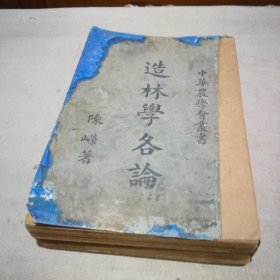 中華農學會叢書
造林學各論
陳嶸著